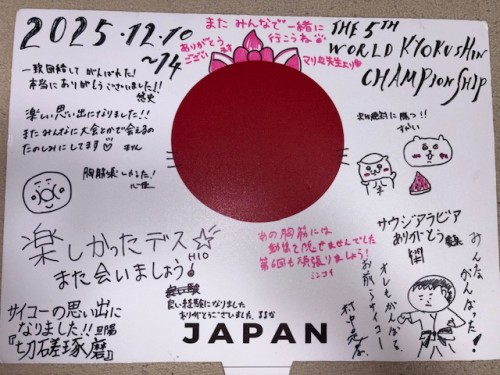 2025.12.10
~14
また みんなで一緒に
行こうね
ありがとう
ございます
マリ先生より
THE 5TH
WORLD KYOKUSHIN
CHAMPIONSHIP
一致団結して がんばれた!
本当にありがとうございました!!
悠史
楽しい思い出になりました!!
また みんなに大会とかで会えるの
たのしみにしてます♡
胸筋楽しかった!
次は絶対に勝つ!!
楽しかったデス☆
HIO
また会いましょう!
あの胸筋には
動揺を隠せませんでした
第6回も頑張りましょう!
シンコイ
サウジアラビア
ありがとう
押忍
みんながんばった!
オレもがんばる
お前らサイコー
サイコーの思い出に
なりました!!
『切磋琢磨』
良い経験になりました
ありがとうございました
JAPAN